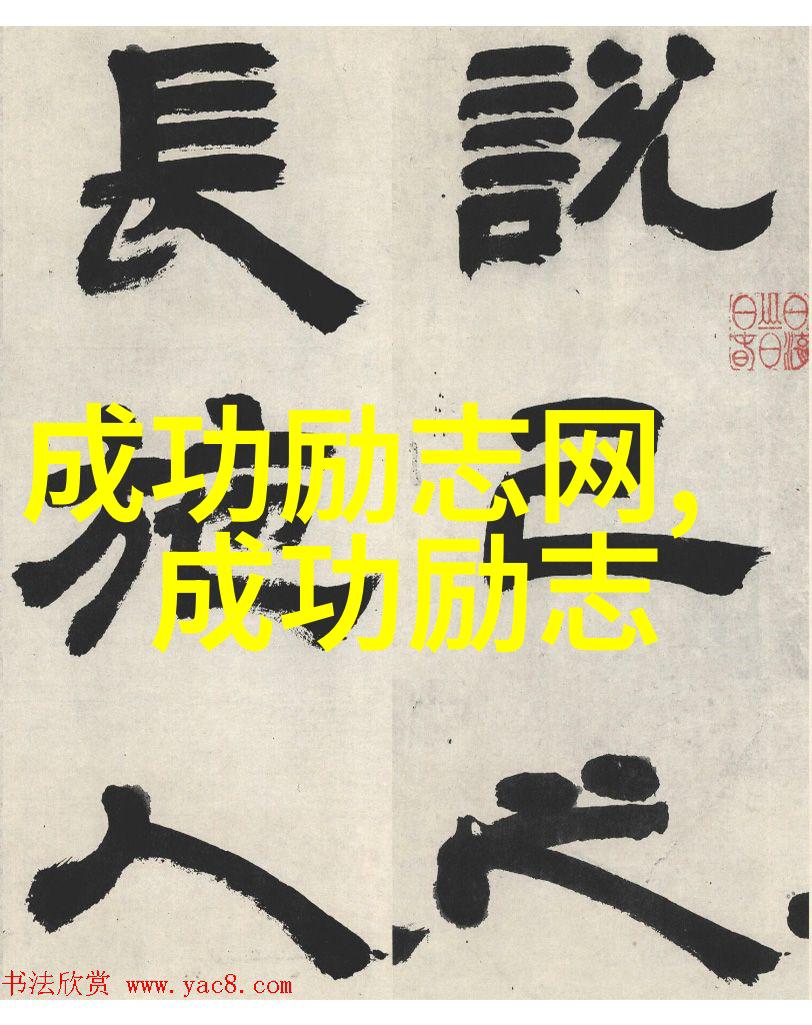 說己之
長施人
成功励志网,
成功励志
书法欣赏 www.yac8.com